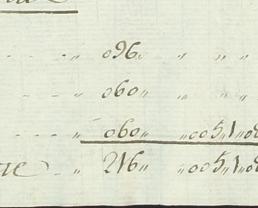 - - - „ 096„ „ „ „
- - „ 060„ „ „ „
- - - „ 060„ „005„1„0
„ 216„ „005„1„0